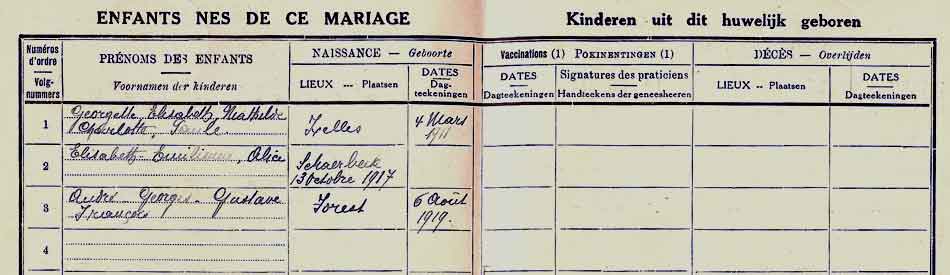 ENFANTS NES DE CE MARIAGE Kinderen uit dit huwelijk geboren
Numéros d'ordre PRÉNOMS DES ENFANTS NAISSANCE — Geboorte Vaccinations (1) POKINENTINGEN (1) DÉCÈS — Overlijden
Volg-nummers Voornamen der kinderen LIEUX --- Plaatsen DATES Dag-teekeningen DATES Dagteekeningen Signatures des praticiens Handteekens der geneesheeren LIEUX -- Plaatsen DATES Dagteekeningen
1 Georgette Elisabeth Mathilde Ixelles 4 Mars
Charlotte, Paule
2 Elisabeth Emilienne, Alice Schaerbeek
13 Octobre 1917
3 André Georges Gustave Forest 6 Août
François 1919.
4